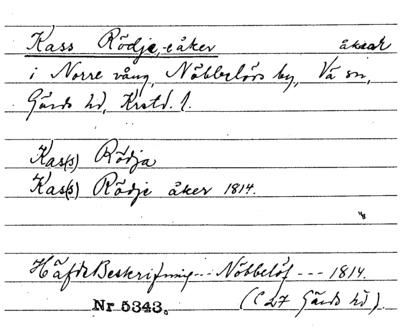 Kass Rödje, -åker åkrar
i Norre vång, Nöbbelövs by, Vä sn,
Gärds hd, Krstd. l.
Kas(s) Rödja
Kas(s) Rödje åker 1814.
HäfdeBeskrifning --- Nöbbelöf --- 1814.
Nr 5343. (C 27 Gärds hd).